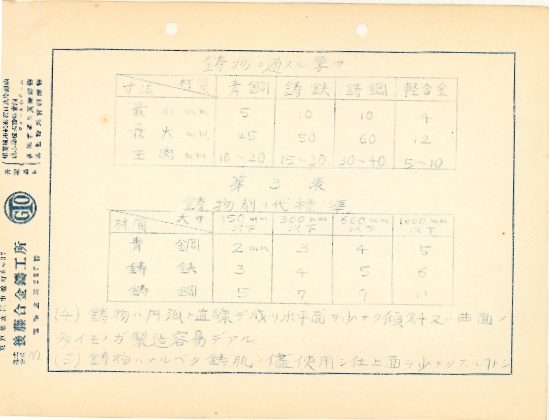 鋳物ニ適スル厚サ
寸法 種目 青銅 鋳鉄 鋳鋼 軽合金
最小 mm 5 10 10 4
最大 mm 25 50 60 12
主肉 mm 10-20 15-20 30-40 5-10
第 2 表
鋳物削リ代標準
材質 大サ 150mm以下 300mm以下 600mm以下 1000mm以下
青銅 2mm 3 4 5
鋳鉄 3 4 5 6
鋳鋼 5 7 9 11
(4) 鋳物ハ円弧ト直線デ成リ水平面ヲ少ナク傾斜又ハ曲面ノ
タイモノガ製造容易デアル
(5) 鋳物ハナルベク鋳肌ノ儘使用シ仕上面ヲ少ナク
後藤合金鋳工所
GTO